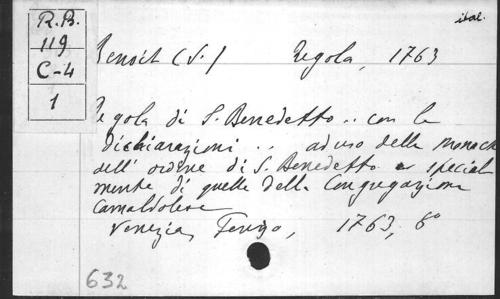 R.B.
119
C-4
1
ital.
Benoit (S.) Regola, 1763
Regola di S. Benedetto .. con le
dichiarazioni .. ad uso delle monache
dell' ordine di S. Benedetto e special
mente di quelle della Congregazione
Camaldolese
Venezia, 1763, 8º
632